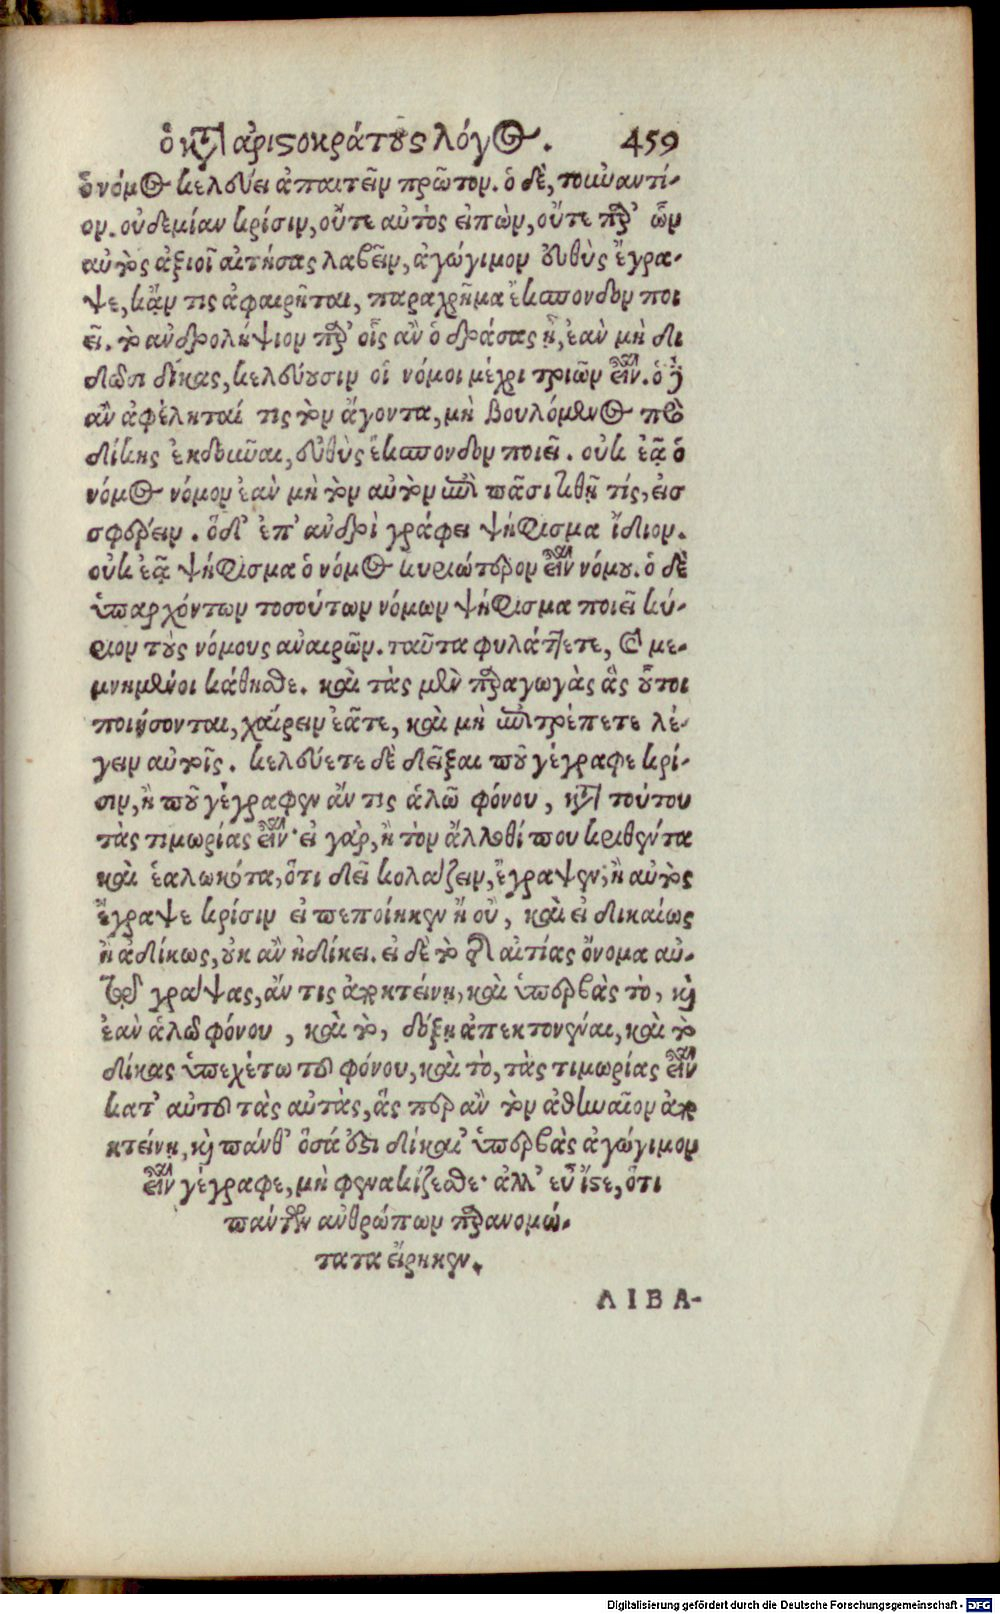 ὁ κατ' ἀριστοκράτους λόγος. 459
ὁ νόμος κελεύει ἀπαιτεῖν πρῶτον. ὁ δὲ, τοὐναντί-
ον. οὐδεμίαν κρίσιν, οὔτε αὐτὸς εἰπὼν, οὔτε παρ' ὧν
αὐτὸς ἀξιοῖ αἰτήσας λαβεῖν, ἀγώγιμον εὐθὺς ἔγρα-
ψε, κἄν τις ἀφαιρῆται, παραχρῆμα ἔκσπονδον ποι
εῖ. τὸ ἀνδρολήψιον παρ' οἷς ἂν ὁ δράσας ᾖ, ἐὰν μὴ δι
δῶσι δίκας, κελεύουσιν οἱ νόμοι μέχρι τριῶν εἶναι. ὁ δὲ
ἂν ἀφέληταί τις τὸν ἄγοντα, μὴ βουλόμενος πρὸ
δίκης ἐκδοῦναι, εὐθὺς ἔκσπονδον ποιεῖ. οὐκ ἐᾷ ὁ
νόμος νόμον ἐὰν μὴ τὸν αὐτὸν ἐπὶ πᾶσι τιθῇ τίς, εἰσ
σφέρειν. ὅδ' ἐπ' ἀνδρὶ γράφει ψήφισμα ἴδιον.
οὐκ ἐᾷ ψήφισμα ὁ νόμος κυριώτερον εἶναι νόμου. ὁ δὲ
ὑπαρχόντων τοσούτων νόμων ψήφισμα ποιεῖ κύ-
ριον τοὺς νόμους ἀναιρῶν. ταῦτα φυλάττετε, καὶ με-
μνημένοι κάθησθε. καὶ τὰς μὲν παραγωγὰς ἃς οὗτοι
ποιήσονται, χαίρειν ἐᾶτε, καὶ μὴ ἐπιτρέπετε λέ-
γειν αὐτοῖς. κελεύετε δὲ δεῖξαι ποῦ γέγραφε κρί-
σιν, ἢ ποῦ γέγραφεν ἄν τις ἁλῶ φόνου, κατὰ τούτου
τὰς τιμωρίας εἶναι· εἰ γὰρ, ἢ τὸν ἄλλοθί που κριθέντα
καὶ ἑαλωκότα, ὅτι δεῖ κολάζειν, ἔγραψεν, ἢ αὐτὸς
ἔγραψε κρίσιν εἰ πεποίηκεν ἢ οὔ, καὶ εἰ δικαίως
ἢ ἀδίκως, οὐκ ἂν ἠδίκει. εἰ δὲ τὸ τῆς αἰτίας ὄνομα αὐ-
τὸ γράψας, ἄν τις ἀποκτείνῃ, καὶ ὑπερβὰς τὸ, καὶ
ἐὰν ἁλῶ φόνου, καὶ τὸ, δόξῃ ἀπεκτονέναι, καὶ τὸ
δίκας ὑπεχέτω τοῦ φόνου, καὶ τὸ, τὰς τιμωρίας εἶναι
κατ' αὐτοῦ τὰς αὐτὰς, ἅς περ ἂν τὸν ἀθηναῖον ἀπο
κτείνῃ, καὶ πάνθ' ὅσά ἐστι δίκαι' ὑπερβὰς ἀγώγιμον
εἶναι γέγραφε, μὴ φενακίζεσθε· ἀλλ' εὖ ἴστε, ὅτι
πάντων ἀνθρώπων παρανομώ-
τατα εἴρηκεν.
ΛΙΒΑ-
Digitalisierung gefördert durch die Deutsche Forschungsgemeinschaft - DFG